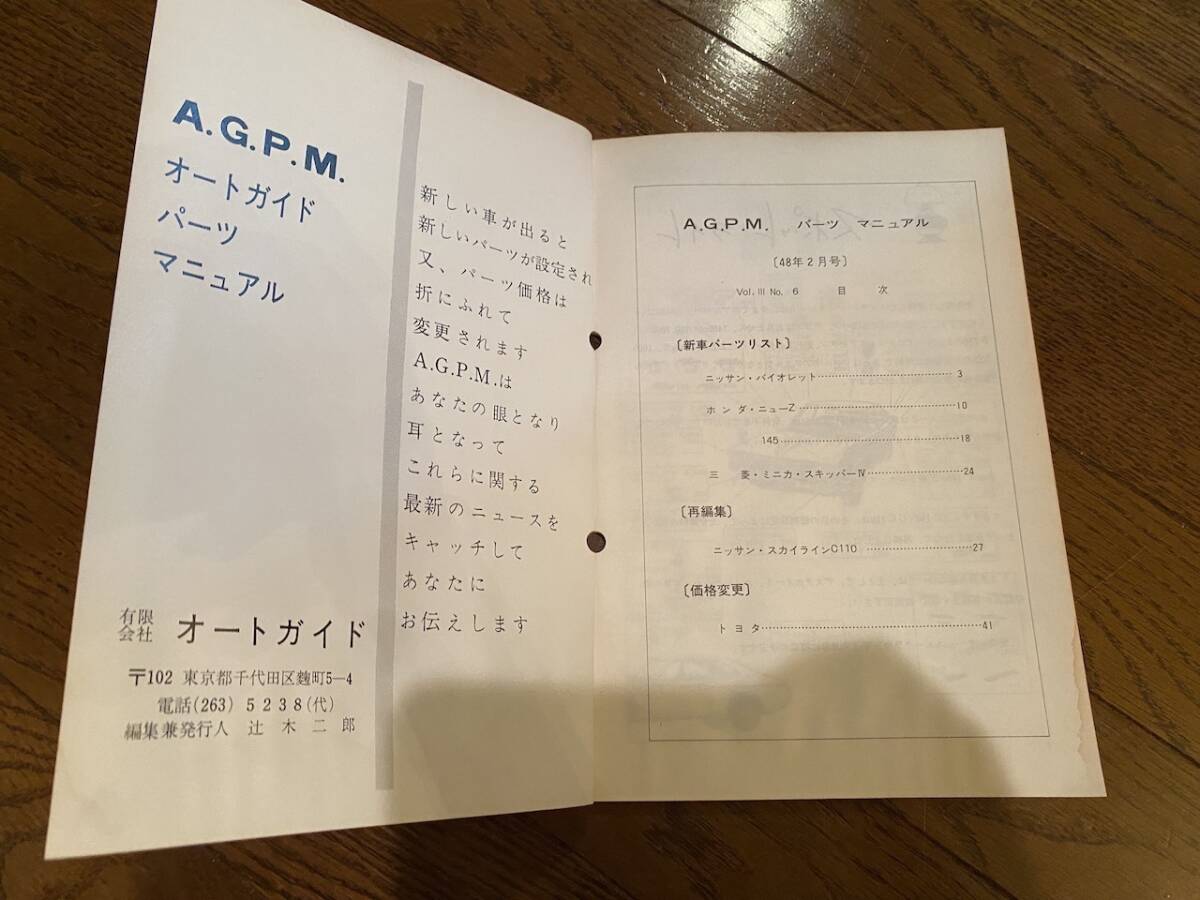 A.G.P.M.
オートガイド
パーツ
マニュアル
有限会社 オートガイド
〒102 東京都千代田区麹町5―4
電話(263) 5238(代)
編集兼発行人 辻木二郎
新しい車が出ると
新しいパーツが設定され
又、パーツ価格は
折にふれて
変更されます
A.G.P.M.は
あなたの眼となり
耳となって
これらに関する
最新のニュースを
キャッチして
あなたに
お伝えします
A.G.P.M. パーツ マニュアル
〔48年2月号〕
Vol. III No. 6 目 次
〔新車パーツリスト〕
ニッサン・バイオレット……………………3
ホンダ・ニューZ……………………10
145……………………18
三 菱・ミニカ・スキッパーIV……………………24
〔再編集〕
ニッサン・スカイラインC110……………………27
〔価格変更〕
トヨタ……………………41